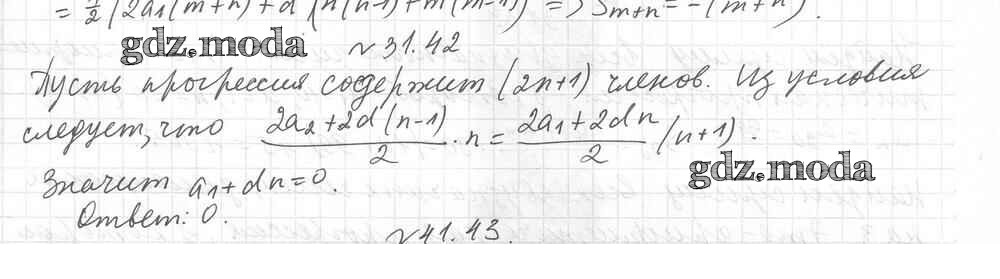 = 1/2 (2a₁(m+n) + d (n(n-1) + m(m-1)) => S_{m+n} = -(m+n).
gdz.moda
№31.42
Пусть прогрессия содержит (2n+1) членов. Из условия
следует, что (2a₂+2d(n-1))/2 · n = (2a₁+2dn)/2 (n+1).
gdz.moda
Значит a₁+dn=0.
Ответ: 0.
№41.43.